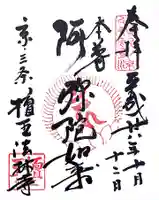 奉拝
平成廿六年十月十二日
本尊
阿弥陀如来
京三条
檀王法林寺